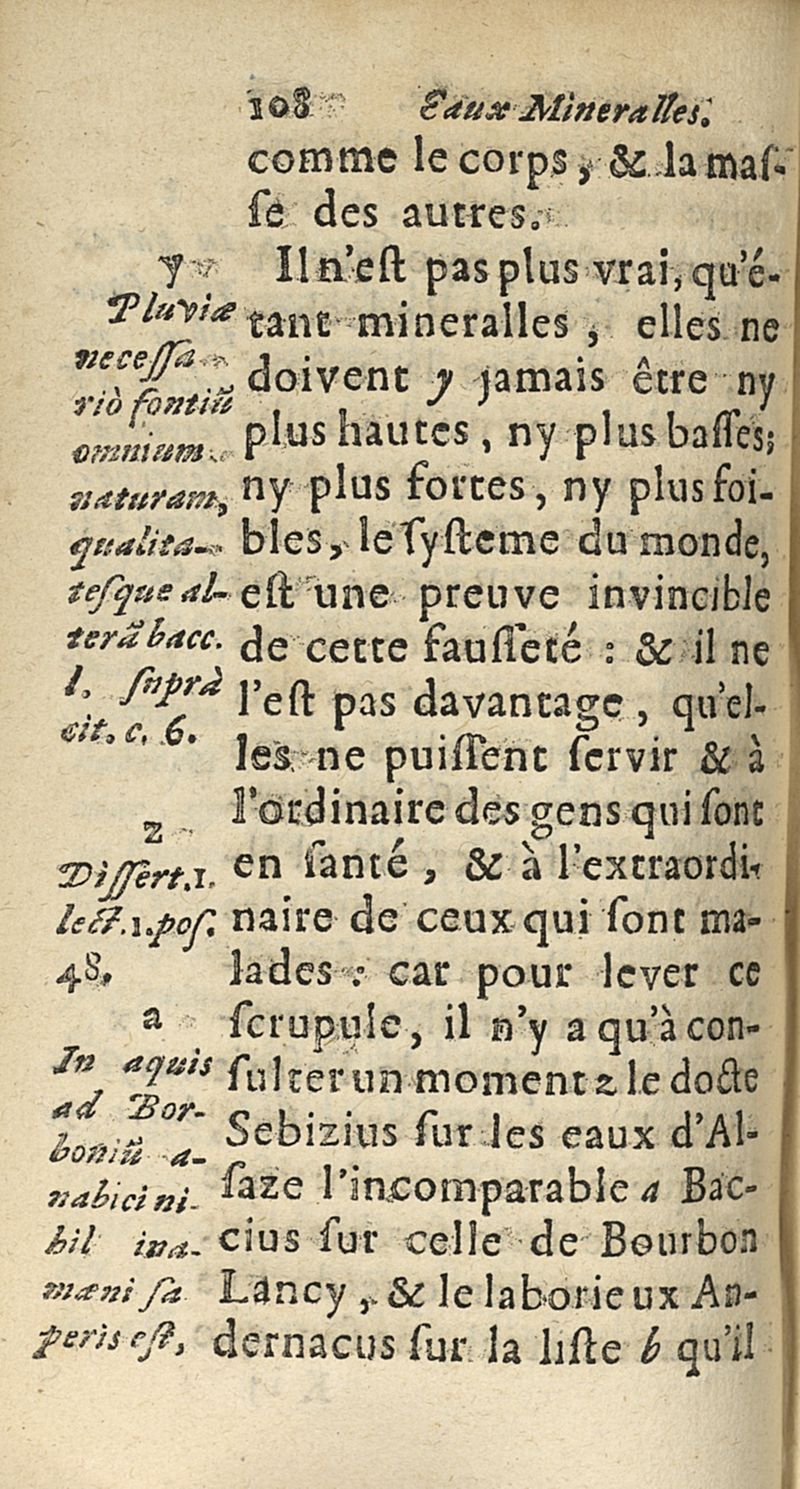 108 Eaux Mineralles.
comme le corps, & la maſ-
ſe des autres.
Il n'eſt pas plus vrai, qu'é-
tant mineralles, elles ne
doivent y jamais être ny
plus hautes, ny plus baſſes;
ny plus fortes, ny plus foi-
bles, le ſyſteme du monde,
eſt une preuve invincible
de cette fauſſeté : & il ne
l'eſt pas davantage, qu'el-
les ne puiſſent ſervir & à
l'ordinaire des gens qui ſont
en ſanté, & à l'extraordi-
naire de ceux qui ſont ma-
lades : car pour lever ce
ſcrupule, il n'y a qu'à con-
ſulter un moment z le docte
Sebizius ſur les eaux d'Al-
ſaze l'incomparable a Bac-
cius ſur celle de Bourbon
Lancy, & le laborieux An-
dernacus ſur la liſte b qu'il
y
Pluviæ
neceſſa-
riò fontiũ
omnium
naturam,
qualita-
teſque al-
terãt bacc.
l. ſuprà
cit. c. 6.
z
Diſſert.1.
lect.1.poſ.
48.
a
In aquis
ad Bor-
boniũ a-
nabici ni-
hil ina-
mæni ſa
peris eſt,